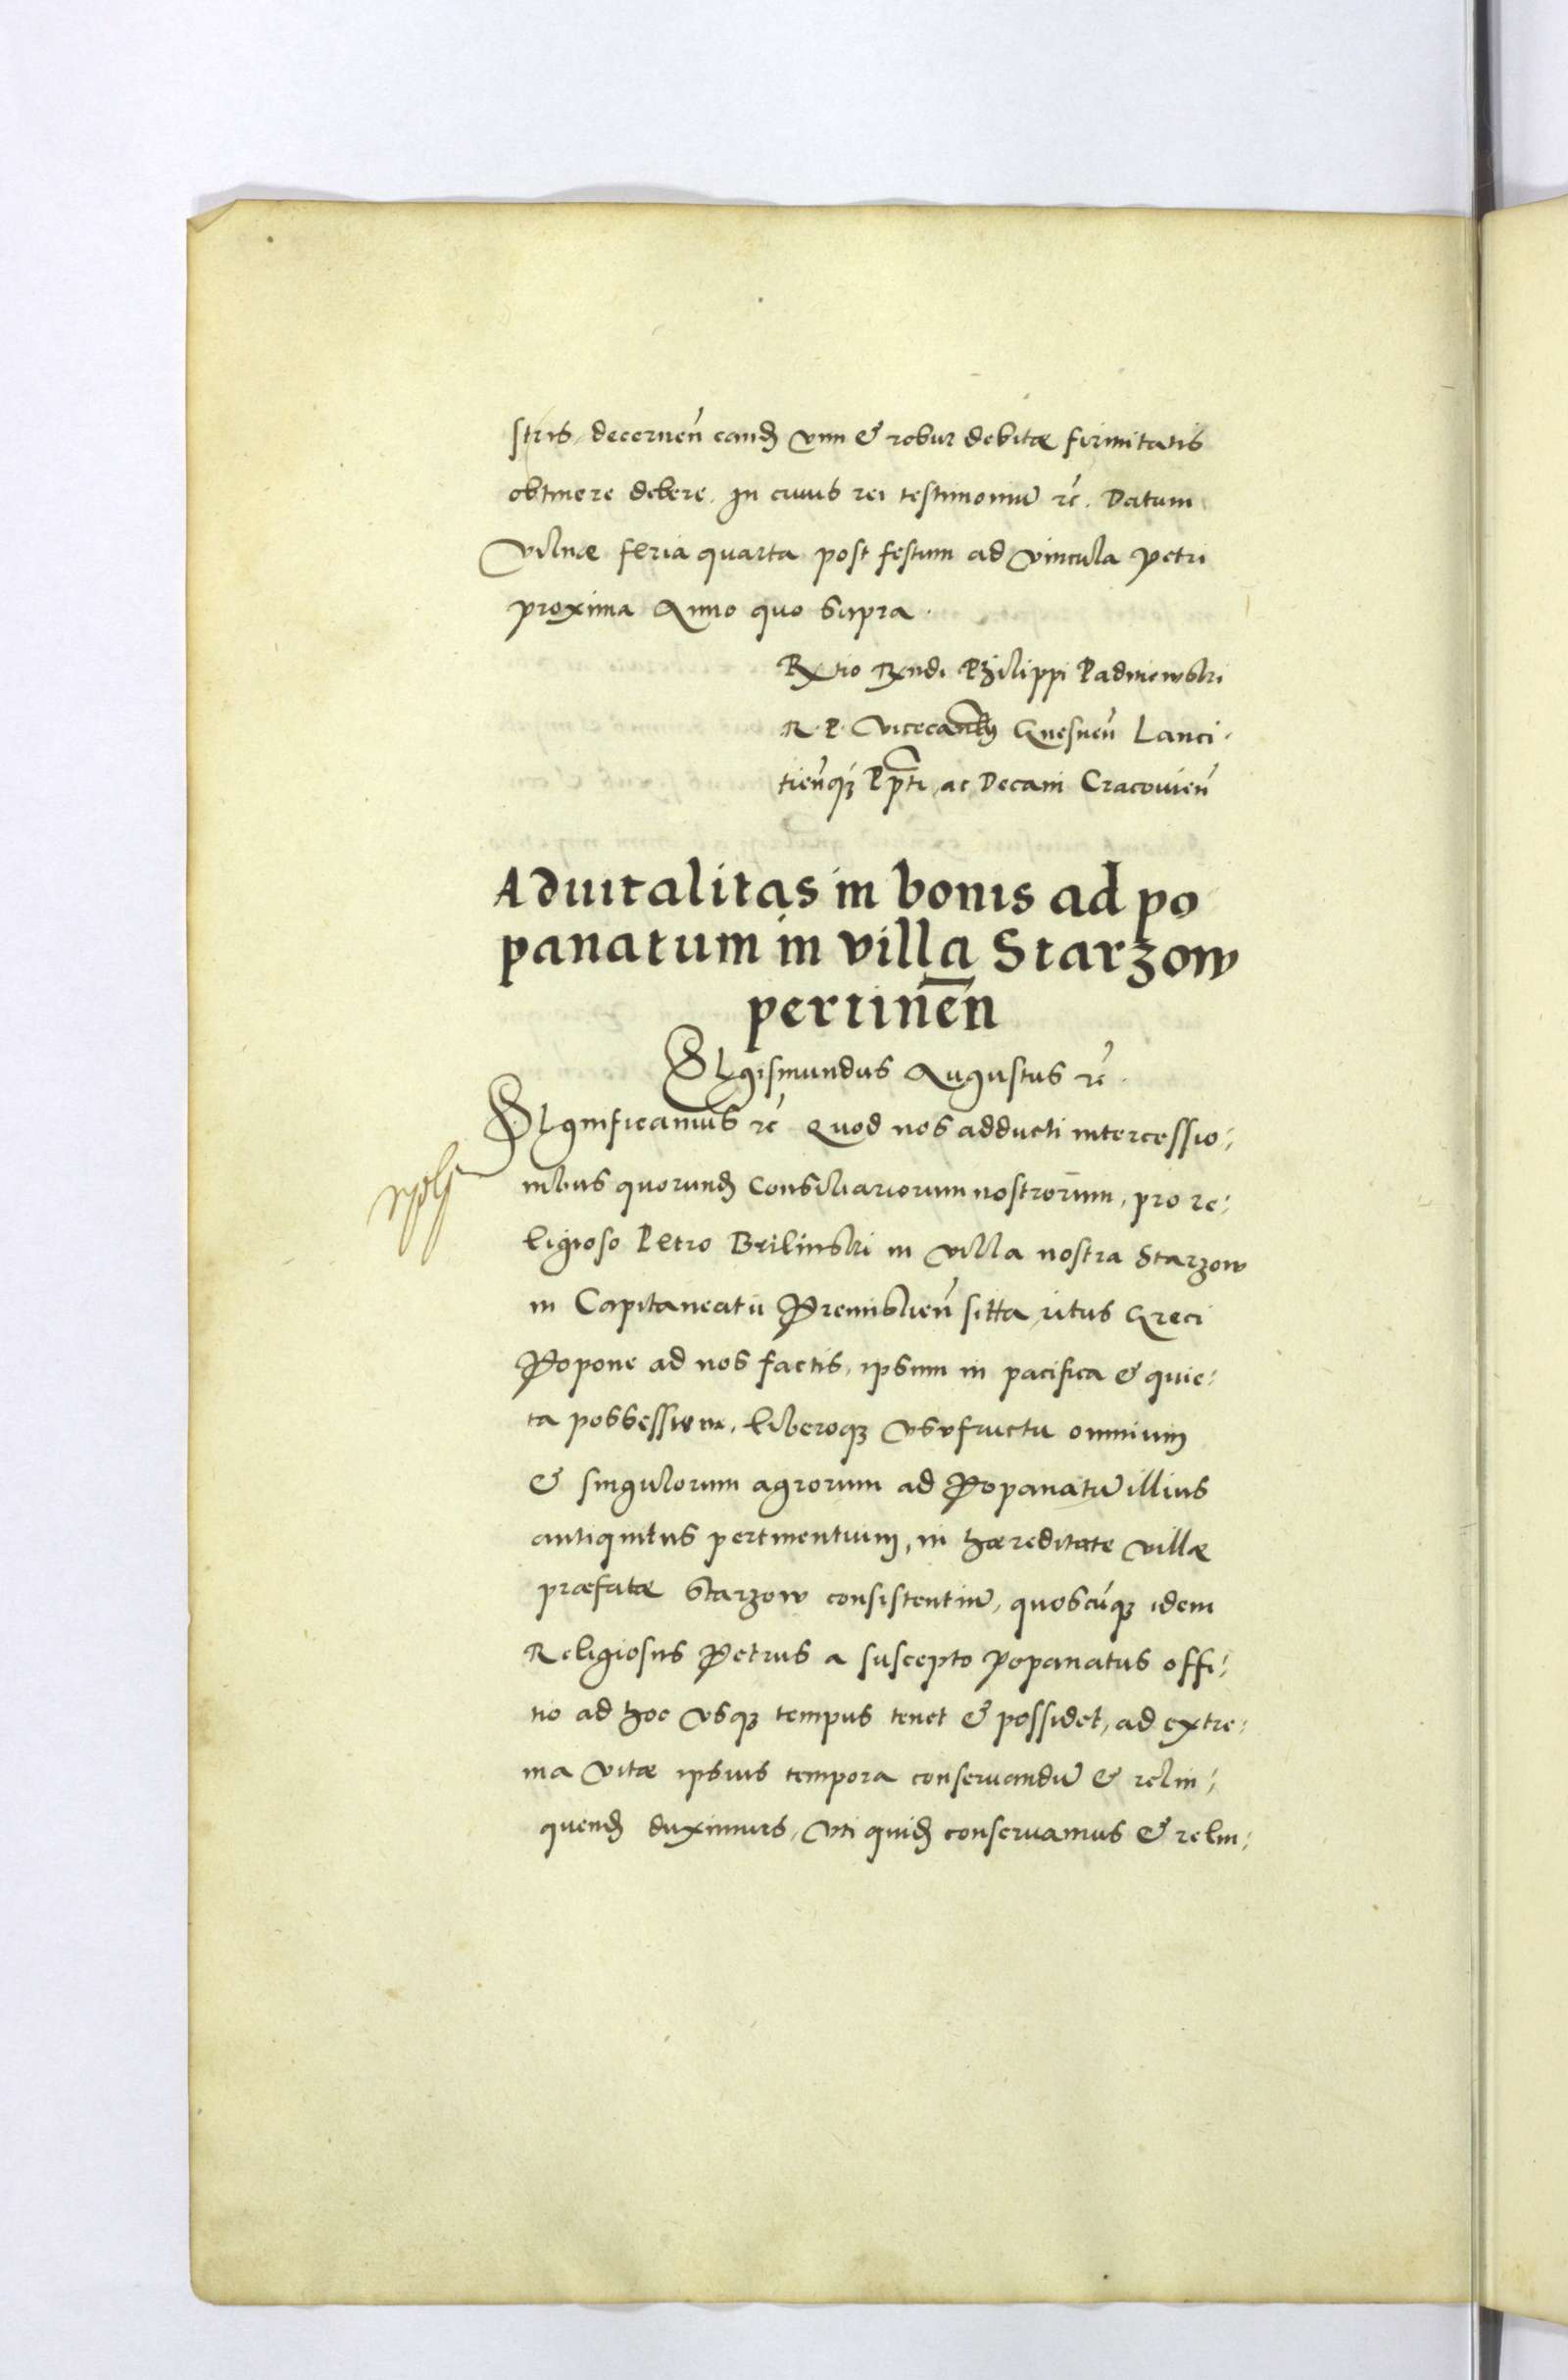 stris, decernen̄ eand̄ vim & robur debitæ firmitatis
obtinere debere. In cuius rei testimoniū rc̄. Datum
Vilnæ feria quarta post festum ad vincula Petri
proxima Anno quo supra.
Rtio Rndi Philippi Padniewski
R. P. Vicecancȩ Gnesnen̄ Lanci-
tien̄qȝ Ppti, ac Decani Cracouien̄
Aduitalitas in bonis ad po
panatum in villa Starzow
pertinen̄
SIgismundus Augustus rc̄.
SIgnificamus rc̄ Quod nos adducti intercessio-
nibus quorund̄ Consiliariorum nostrorum, pro re-
ligioso Petro Brilinski in villa nostra Starzow
in Capitaneatu Premislien̄ sitta, ritus Greci
Popone ad nos factis, ipsum in pacifica & quie-
ta possessione, liberoqȝ vsufructu omnium
& singulorum agrorum ad Popanatū illius
antiquitus pertinentium, in hæreditate villæ
præfatæ Starzow consistentiū, quoscūqȝ idem
Religiosus Petrus a suscepto Popanatus offi-
tio ad hoc vsqȝ tempus tenet & possidet, ad extre-
ma vitæ ipsius tempora conseruandū & relin-
quend̄ duximus, Vti quid̄ conseruamus & relin-